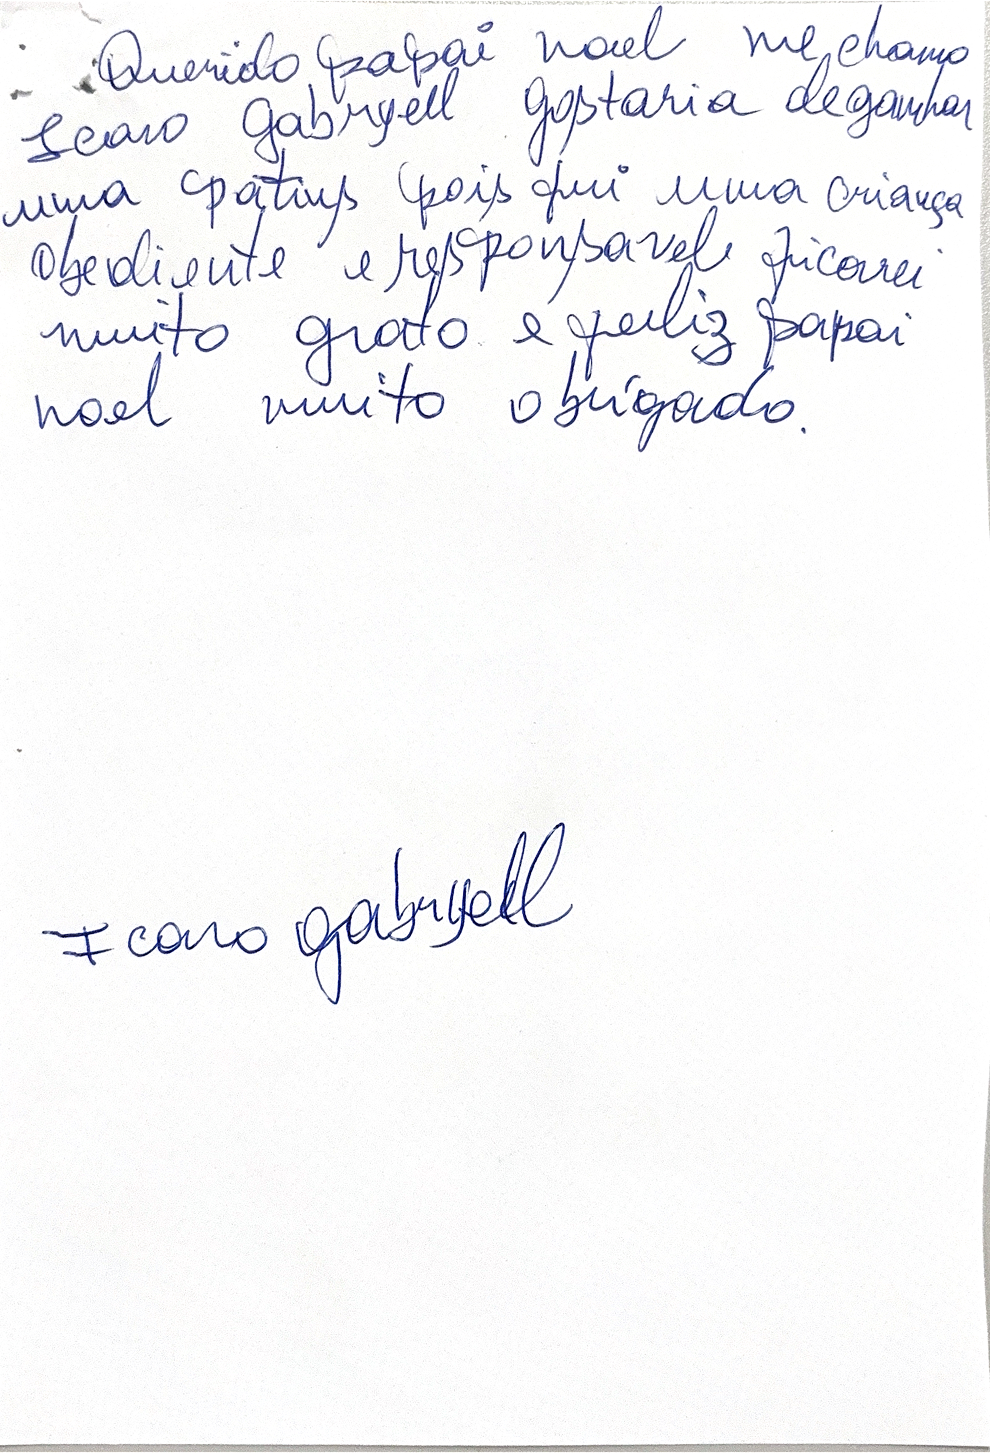 Querido papai noel me chamo
Icaro Gabryell gostaria de ganhar
uma patins pois fui uma criança
obediente e responsavel ficarei
muito grato e feliz papai
noel muito obrigado.
Icaro gabryell